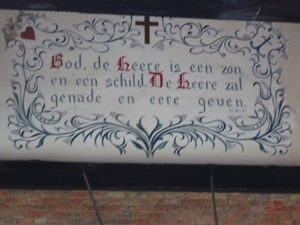 God, de Heere, is een zon
en een schild. De Heere zal
genade en eere geven.